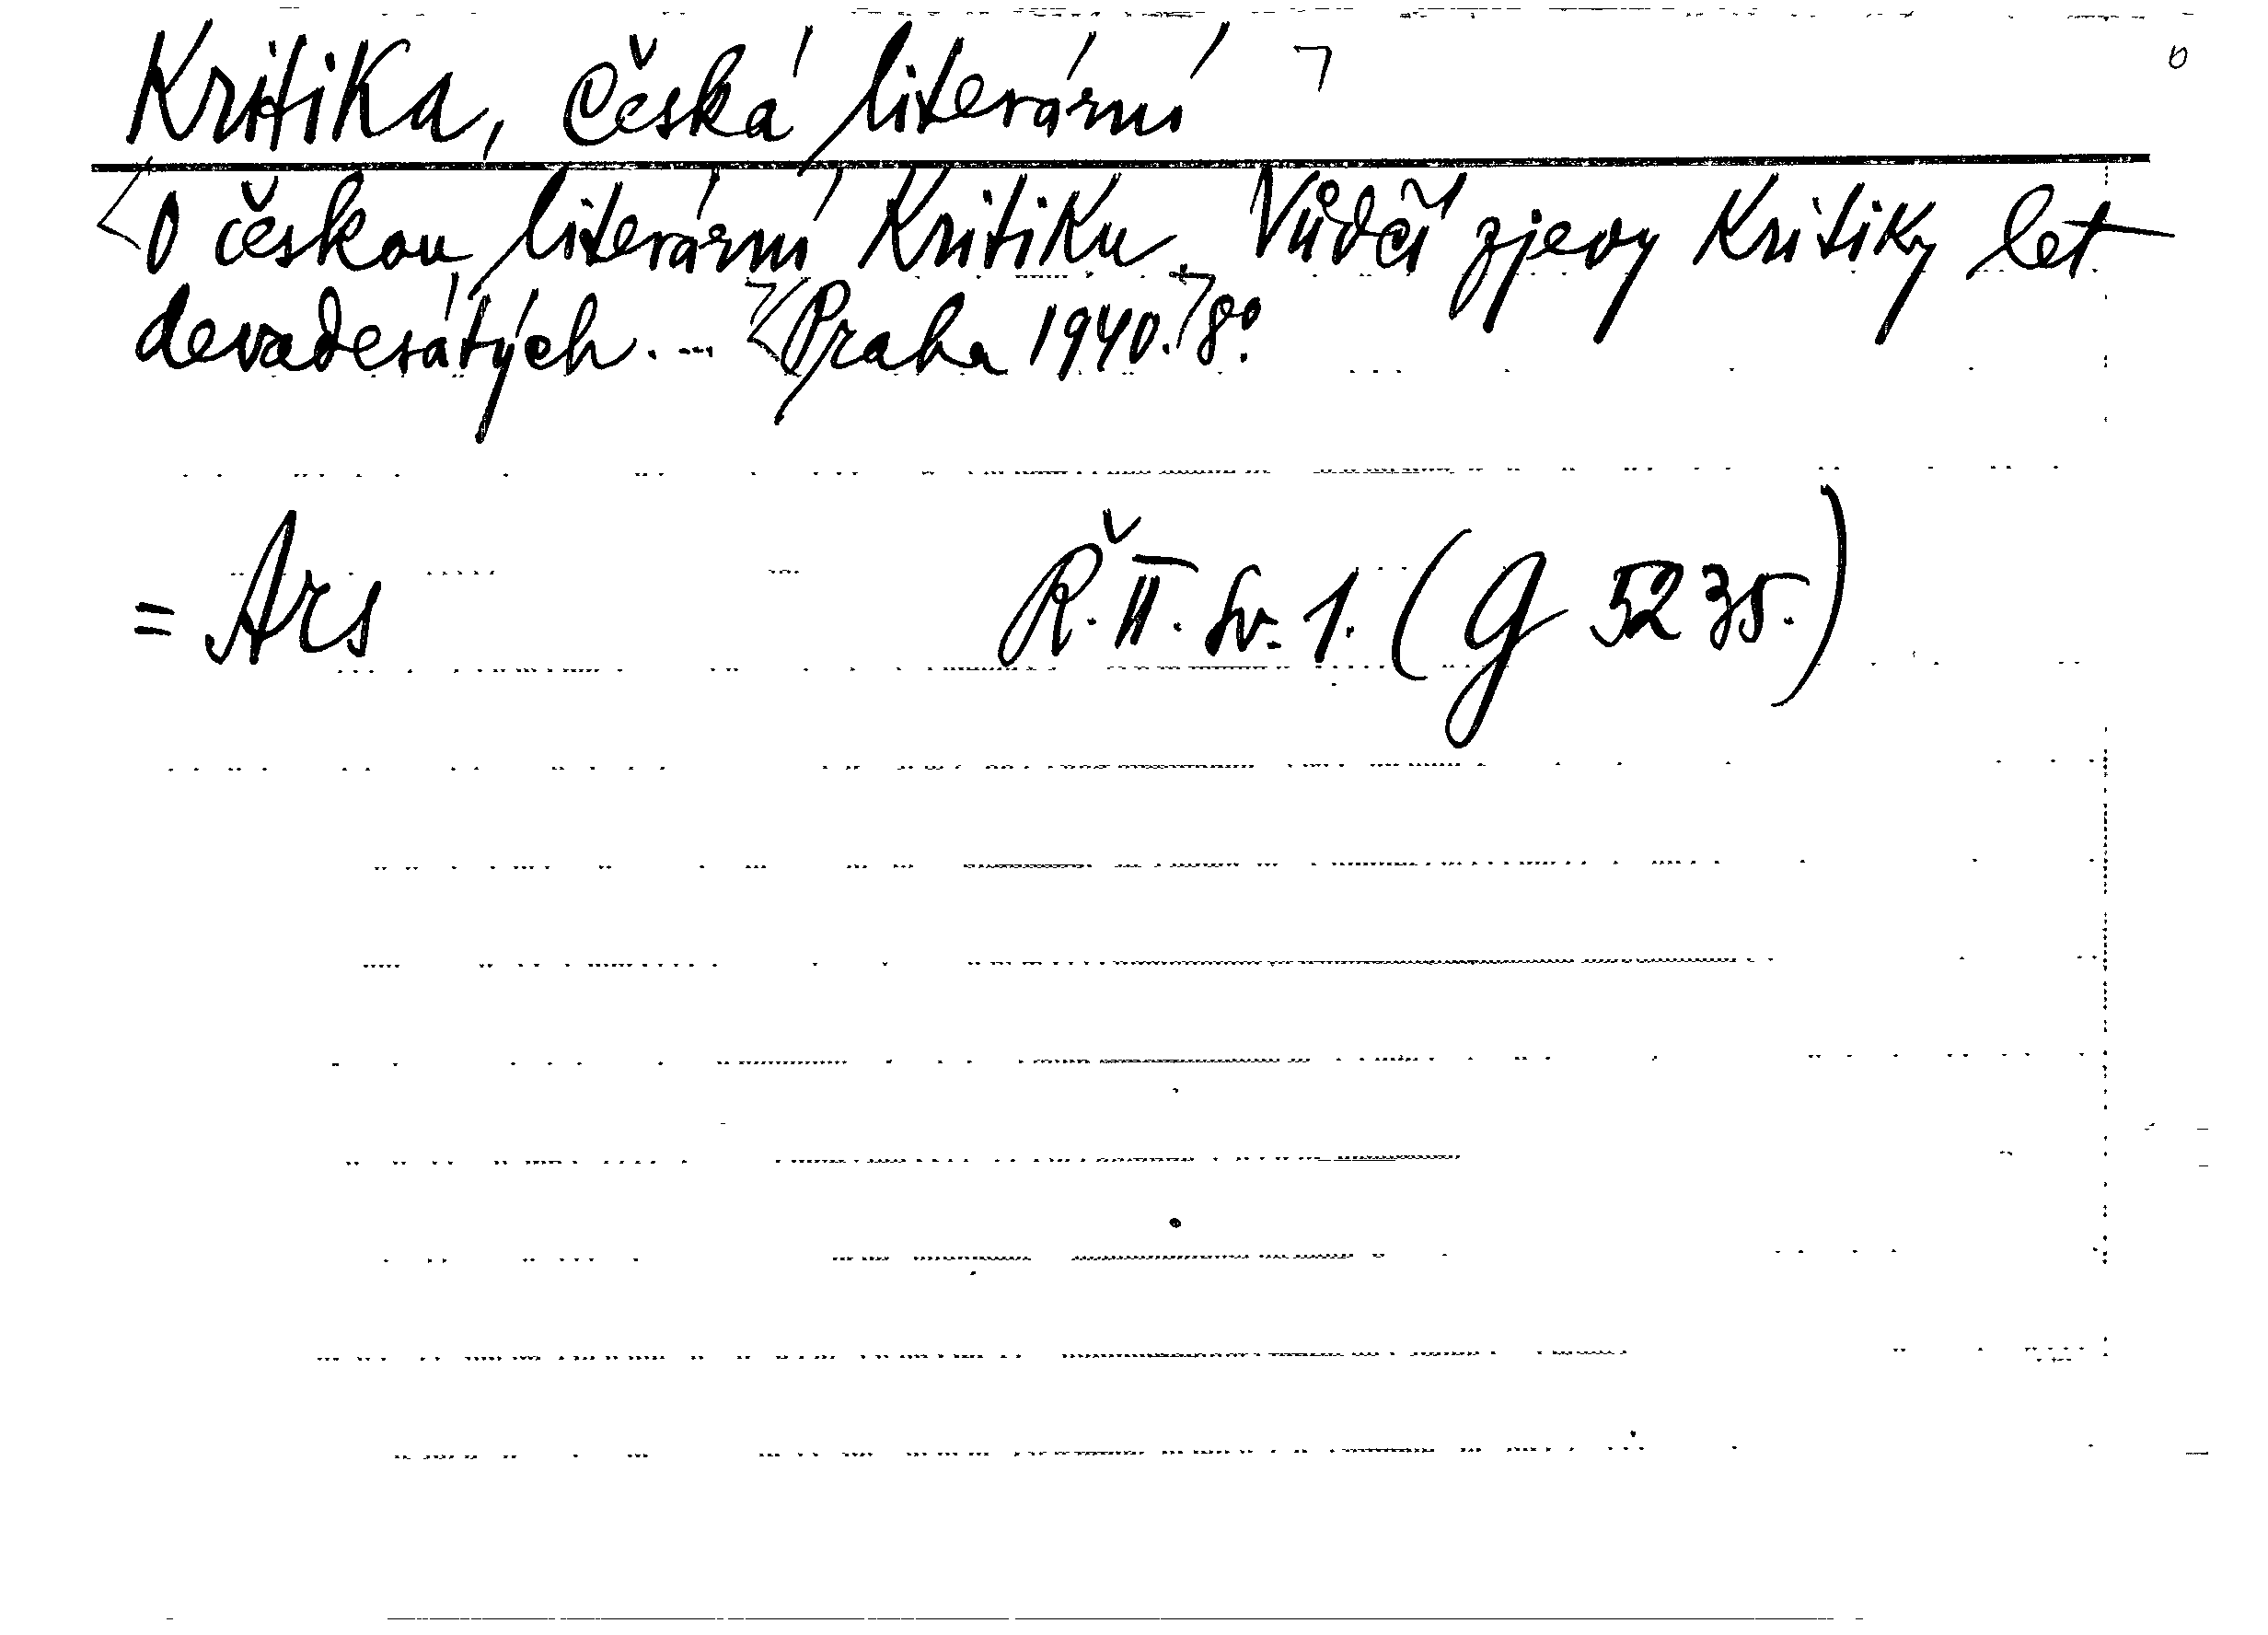 Kritika, česká literární
O českou literární kritiku. Vůdčí zjevy kritiky let
devadesátých. ... Praha 1940. 8°.
= Ars Ř. II. sv. 1. (G 5235.)